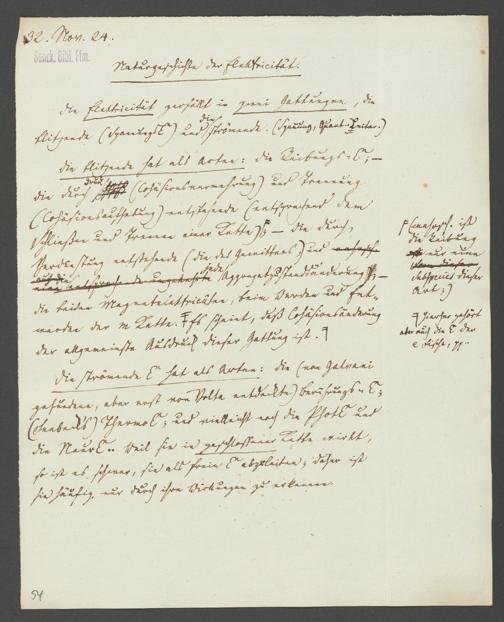 32. Nov. 24.
Senck. Bibl. Ffm.
Naturgeschichte der Elektricität.
Die Elektricität zerfällt in zwei Gattungen, die
blitzende (Spannungs E) und die strömende. (Spannung, Quant. Leiter.)
Die blitzende hat als Arten: die Reibungs-E; —
die durch Druck (Cohäsionsvermehrung) und Trennung
(Cohäsionsaufhebung) entstehende (entsprechend dem
Schließen und Trennen einer Kette); — die durch
Verdunstung entstehende (die des Gewitters) und
Aggregatzustandsänderung; —
die beiden Magnetelektricitäten, beim Werden und Ent-
werden der M Kette. Es scheint, daß Cohäsionsänderung
der allgemeinste Ausdruck dieser Gattung ist.
Die strömende E hat als Arten: die (von Galvani
gefundene, aber erst von Volta entdeckte) Berührungs-E;
(Seebecks) ThermoE; und vielleicht noch die PhotE und
die NeurE. Weil sie in geschlossener Kette wirkt,
so ist es schwer, sie als freie E abzuleiten; daher ist
sie häufig nur durch ihre Wirkungen zu erkennen
ist
die Reibung
nur eine
dieser
Art;)
hierher gehört
aber auch die E der
Fische,
54